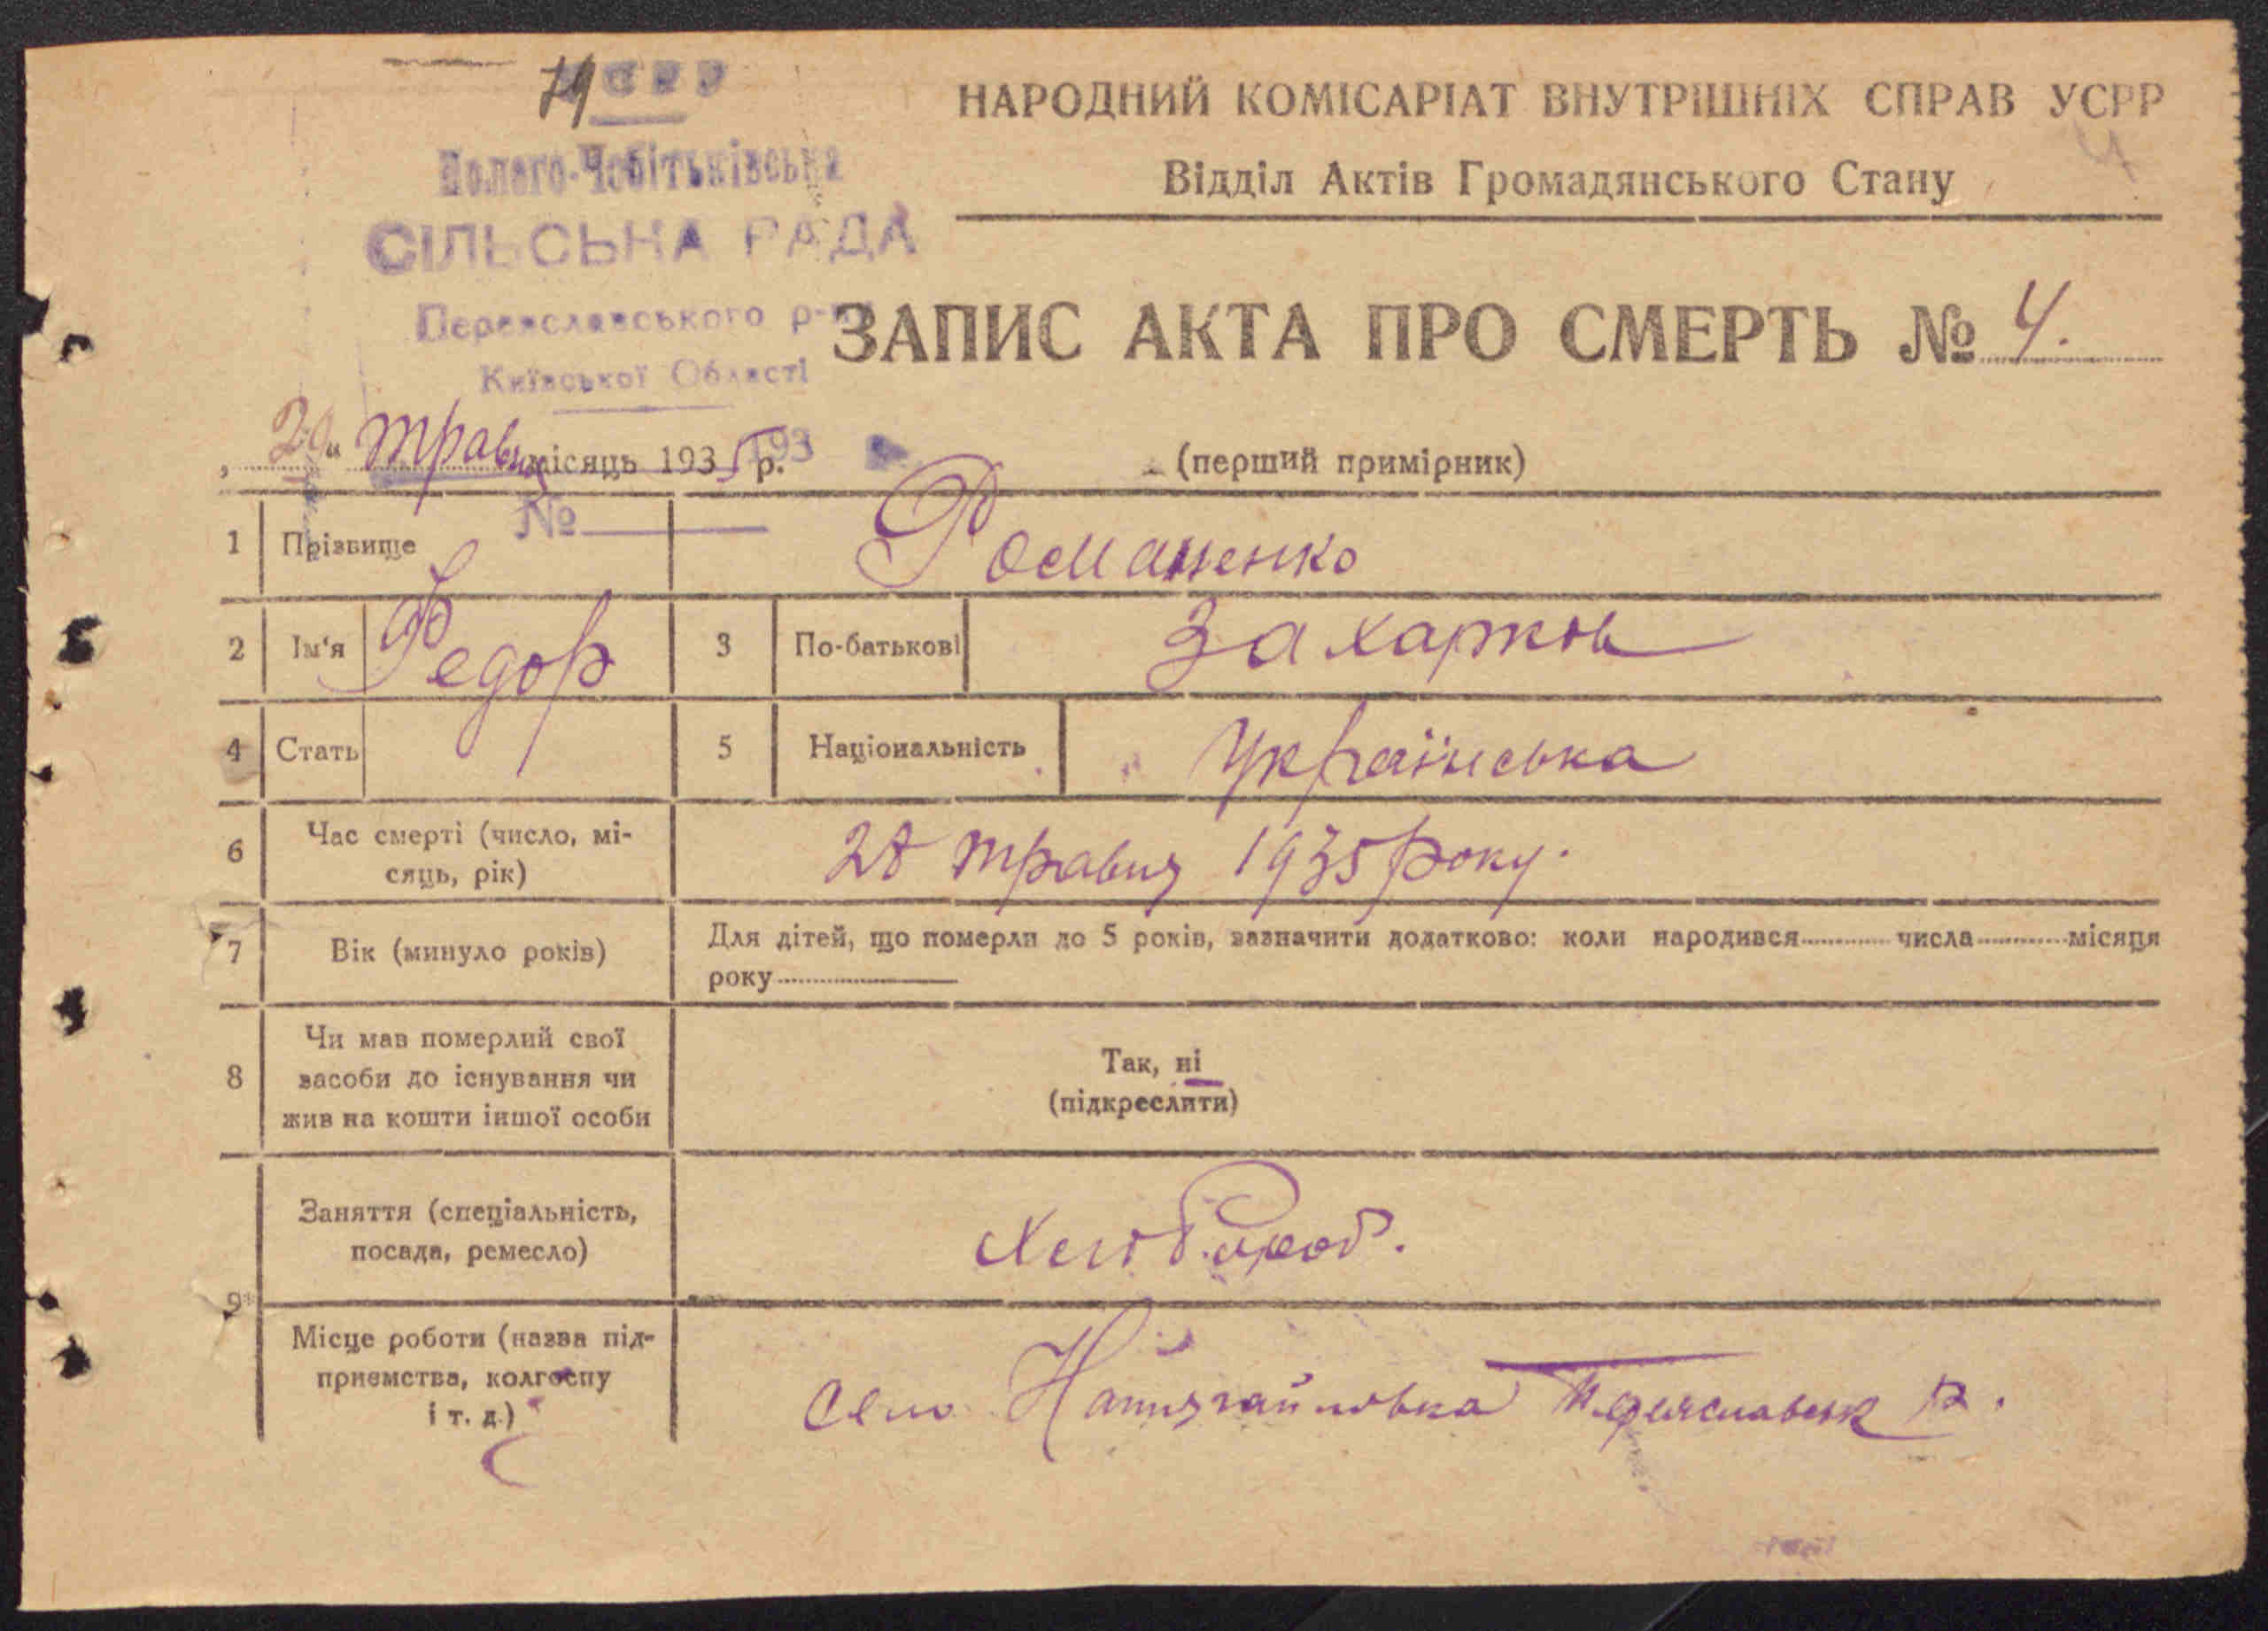 79
УСРР
Полого-Чобітьківська
СІЛЬСЬКА РАДА
Переяславського р-ну
Київської Області
193
№
НАРОДНИЙ КОМІСАРІАТ ВНУТРІШНІХ СПРАВ УСРР
4
Відділ Актів Громадянського Стану
ЗАПИС АКТА ПРО СМЕРТЬ № 4.
„29“ травня місяць 1935 р.
(перший примірник)
1 Прізвище Романенко
2 Ім'я Федор 3 По-батькові Захарков
4 Стать 5 Національність Українська
6 Час смерті (число, мі-
сяць, рік) 28 травня 1935 року.
7 Вік (минуло років) Для дітей, що померли до 5 років, зазначити додатково: коли народився числа місяця
року
8 Чи мав померлий свої
засоби до існування чи
жив на кошти іншої особи
Так, ні
(підкреслити)
9 Заняття (спеціальність,
посада, ремесло) Хлібороб.
Місце роботи (назва під-
приємства, колгоспу
і т. д.)
село Переяславськ р.